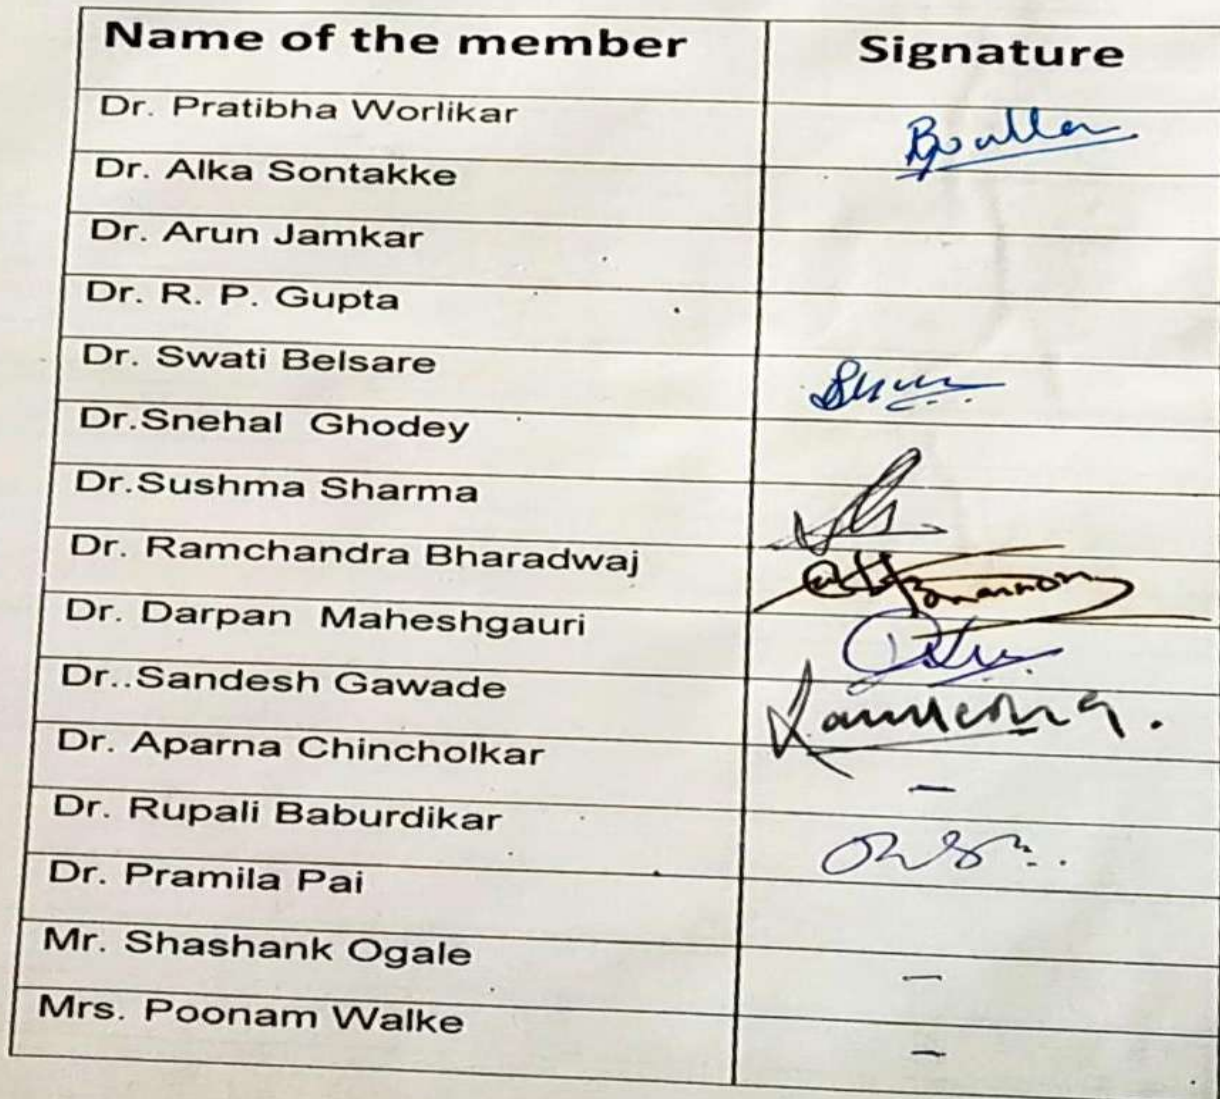 Name of the member Signature
Dr. Pratibha Worlikar
Dr. Alka Sontakke
Dr. Arun Jamkar
Dr. R. P. Gupta
Dr. Swati Belsare
Dr.Snehal Ghodey
Dr.Sushma Sharma
Dr. Ramchandra Bharadwaj
Dr. Darpan Maheshgauri
Dr..Sandesh Gawade
Dr. Aparna Chincholkar –
Dr. Rupali Baburdikar
Dr. Pramila Pai
Mr. Shashank Ogale –
Mrs. Poonam Walke –